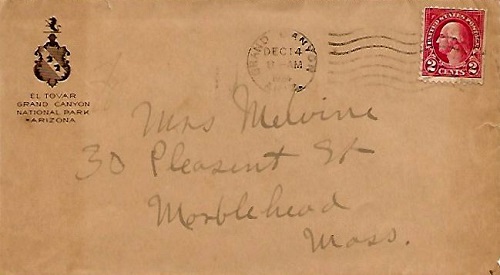 EL TOVAR
GRAND CANYON
NATIONAL PARK
ARIZONA
GRAND CANYON
DEC 14
AM
UNITED STATES POSTAGE
2 CENTS 2
Mrs Melvine
30 Pleasent St
Marblehead
Mass.